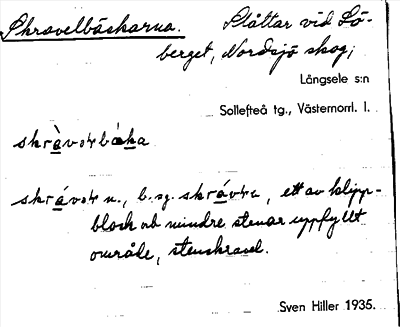 Skravelbäckarna. Slåttar vid Lö-
berget, Nordsjö skog;
Långsele s:n
Sollefteå tg., Västernorrl. l.
skràvəɫbäka
skrávəɫ n., b.sg. skrávɫa, ett av klipp-
block ob mindre stenar uppfyllt
område, stenskravel.
Sven Hiller 1935.